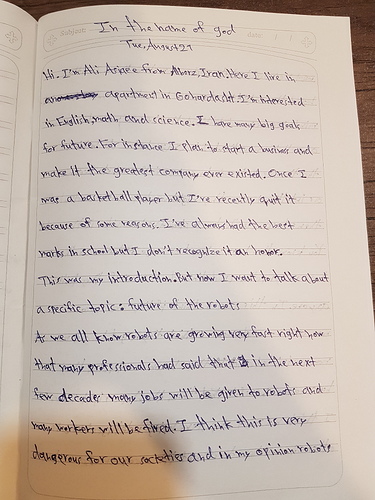 In the name of god
Subject:
date: / /
Tue, August 27
Hi. I'm Ali from Alborz, Iran. Here I live in
apartment in Gohardasht. I'm interested
in English, math and science. I have many big goals
for future. For instance I plan to start a business and
make it the greatest company ever existed. Once I
was a basketball player but I've recently quit it
because of some reasons. I've always had the best
marks in school but I don't recognize it an honor.
This was my introduction. But now I want to talk about
a specific topic: future of the robots
As we all know robots are growing very fast right now
that many professionals had said that in the next
few decades many jobs will be given to robots and
many workers will be fired. I think this is very
dangerous for our societies and in my opinion robots